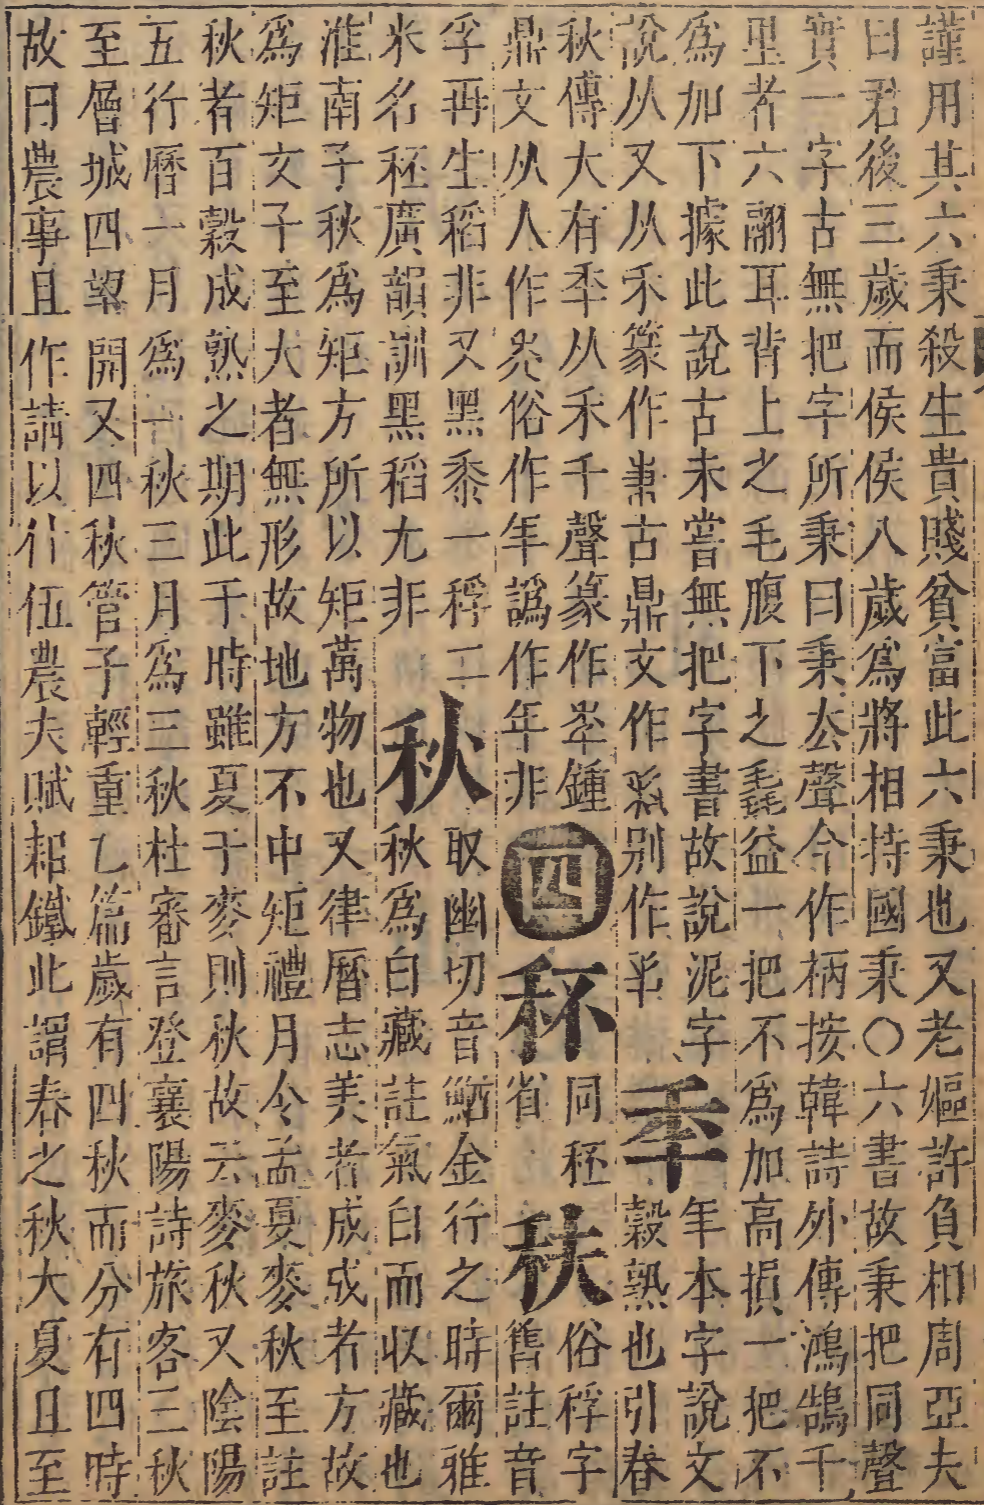 謹用其六秉殺生貴賤貧富此六秉也又老嫗許負相周亞夫
曰君後三歲而侯侯八歲爲將相持國秉○六書故秉把同聲
實一字古無把字所秉曰秉厺聲今作柄按韓詩外傳鴻鵠千
里者六翮耳背上之毛腹下之毳益一把不爲加高損一把不
爲加下據此說古未嘗無把字書故說泥字
說从又从禾篆作古鼎文作別作
秊
年本字說文
榖熟也引春
秋傳大有秊从禾千聲篆作秊鍾
鼎文从人作秂俗作年譌作年非
四
同秠
省
俗稃字
舊註音
孚再生稻非又黑黍一稃二
米名秠廣韻訓黑稻尤非
秋
取幽切音鰌金行之時爾雅
秋爲白藏註氣白而收藏也
淮南子秋爲矩方所以矩萬物也又律曆志美者成成者方故
爲矩文子至大者無形故地方不中矩禮月令孟夏麥秋至註
秋者百穀成熟之期此于時雖夏于麥則秋故云麥秋又陰陽
五行曆一月爲一秋三月爲三秋杜審言登襄陽詩旅客三秋
至層城四望開又四秋管子輕重乙篇歲有四秋而分有四時
故曰農事且作請以什伍農夫賦耜鐵此謂春之秋大夏且至